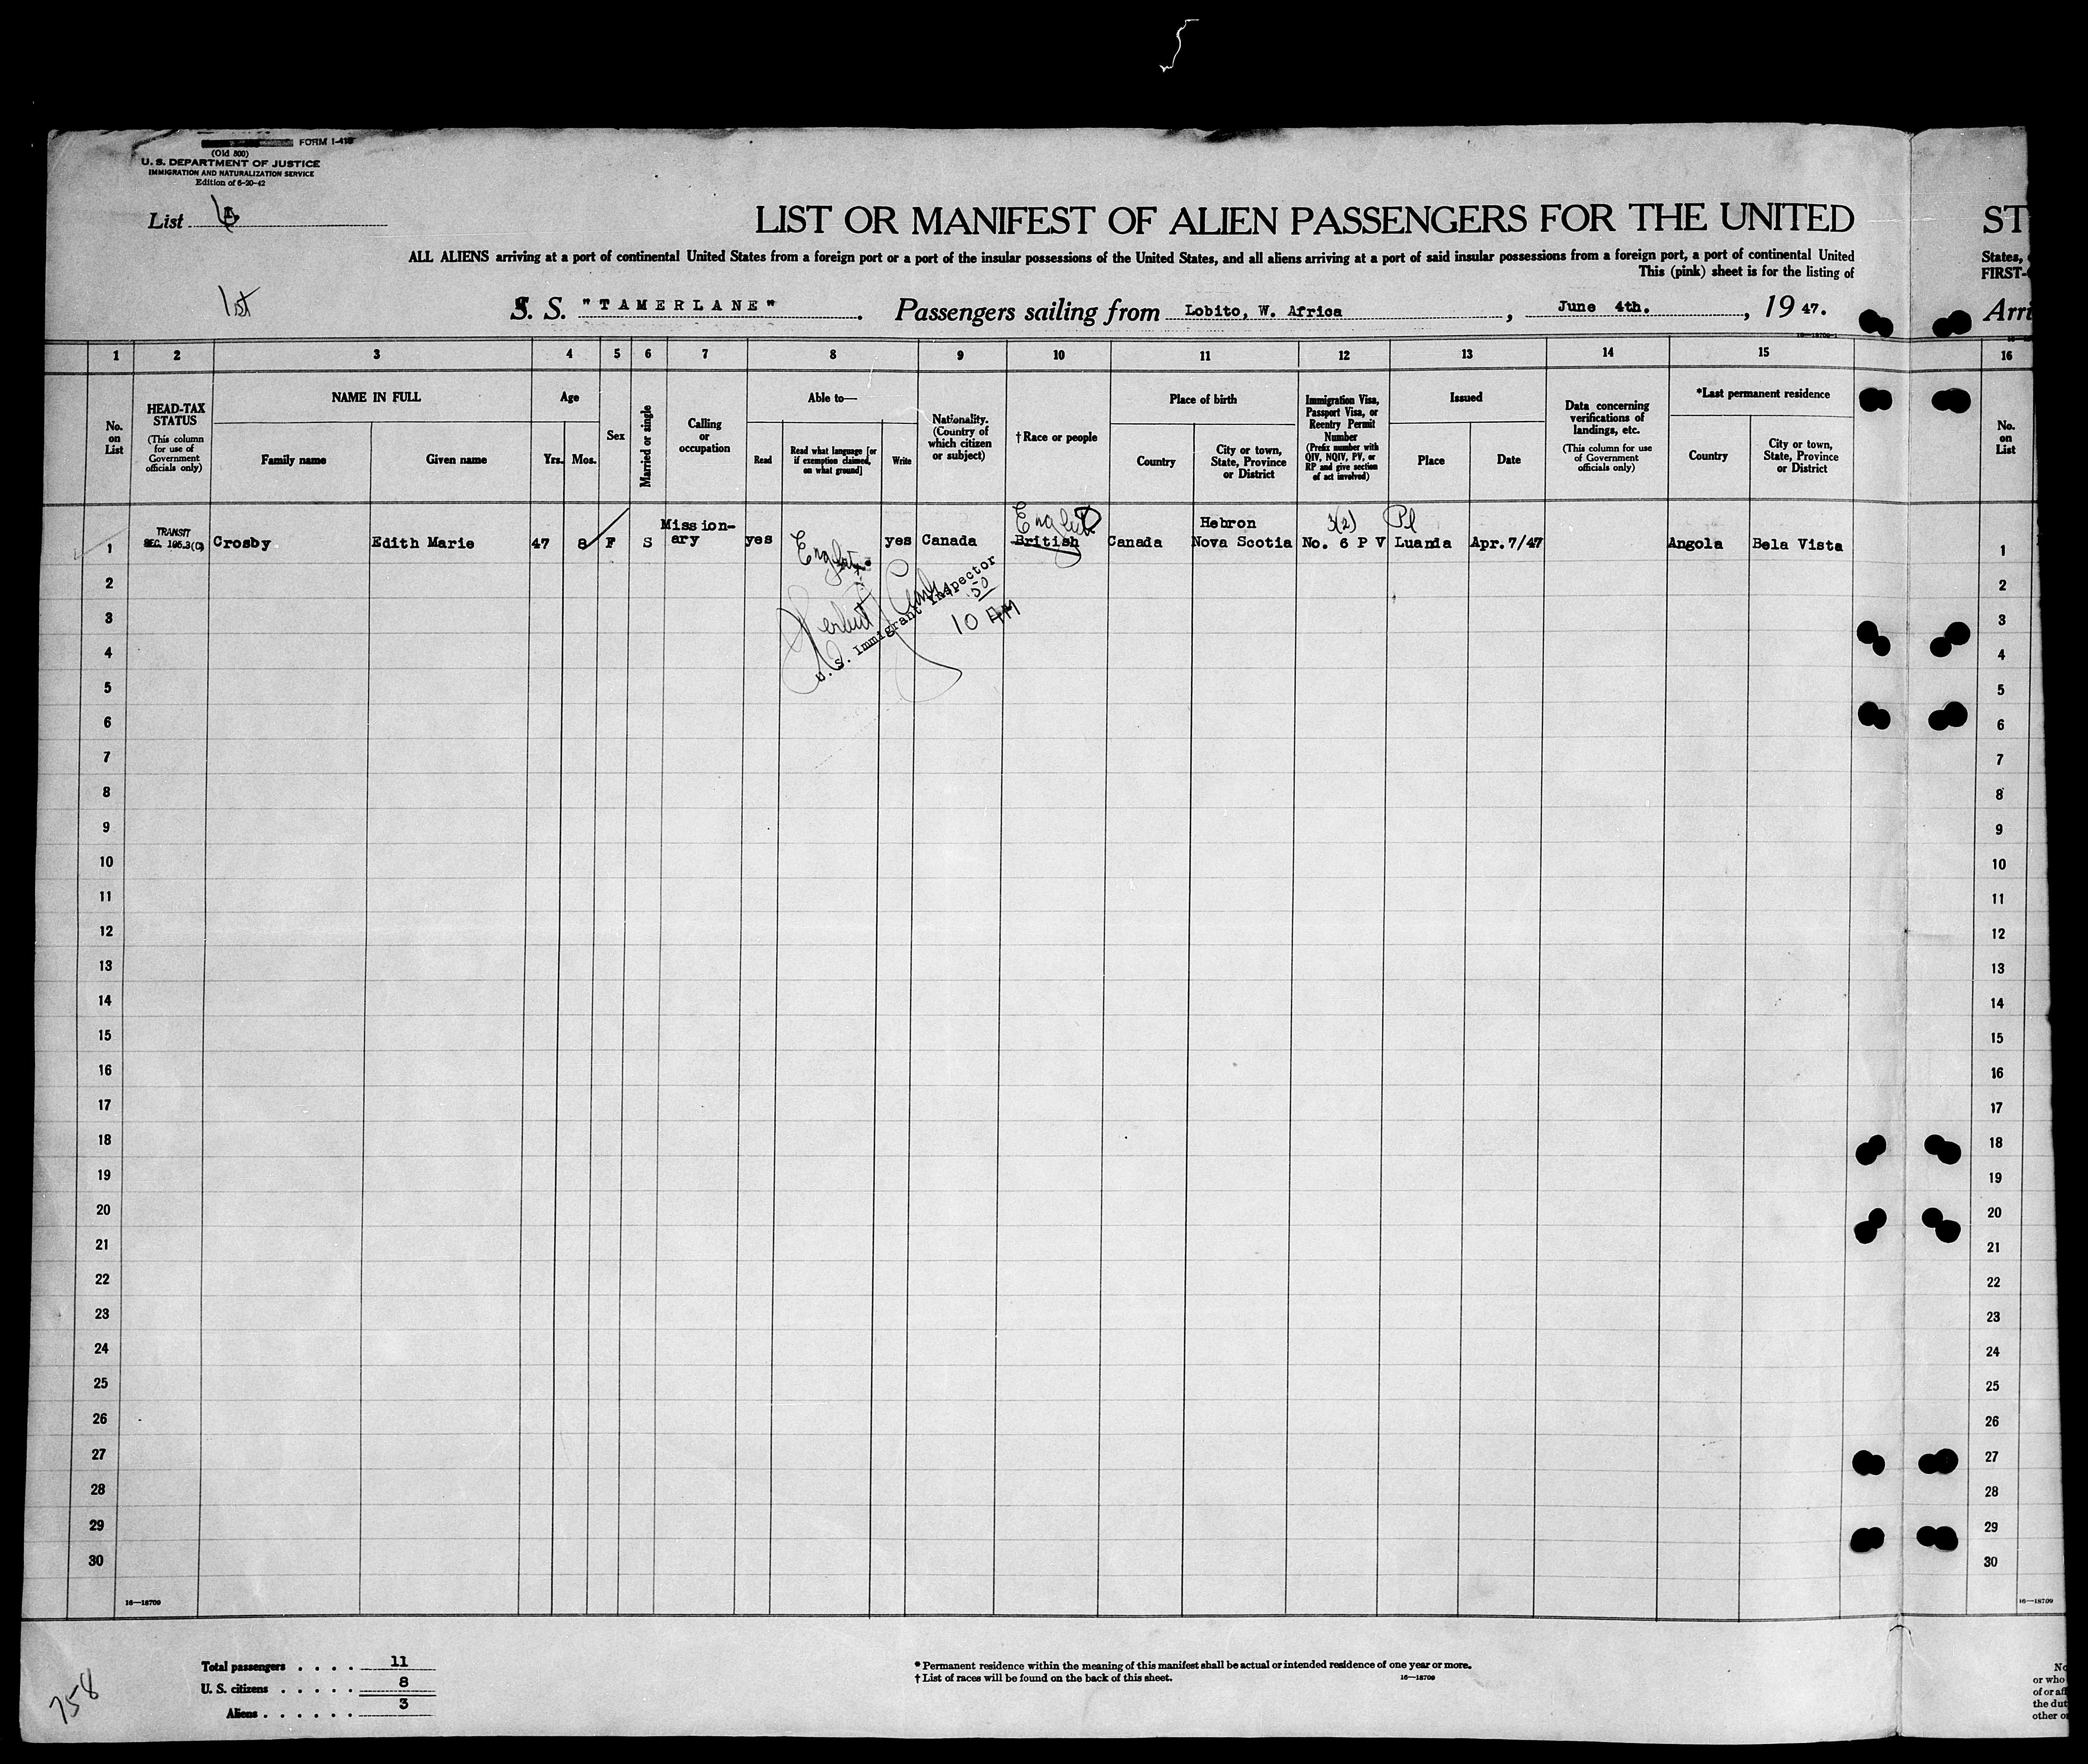 FORM I-415
(Old 800)
U. S. DEPARTMENT OF JUSTICE
IMMIGRATION AND NATURALIZATION SERVICE
Edition of 6-20-42
List
LIST OR MANIFEST OF ALIEN PASSENGERS FOR THE UNITED
ST
ALL ALIENS arriving at a port of continental United States from a foreign port or a port of the insular possessions of the United States, and all aliens arriving at a port of said insular possessions from a foreign port, a port of continental United
States,
This (pink) sheet is for the listing of
FIRST-
1st
S. S. "TAMERLANE". Passengers sailing from Lobito, W. Africa, June 4th., 19 47.
Arri
16—18709-1
1 2 3 4 5 6 7 8 9 10 11 12 13 14 15 16
No. on List
HEAD-TAX STATUS
(This column for use of Government officials only)
NAME IN FULL
Family name
Given name
Age
Yrs. Mos.
Sex
Married or single
Calling or occupation
Able to—
Read
Read what language [or if exemption claimed, on what ground]
Write
Nationality. (Country of which citizen or subject)
†Race or people
Place of birth
Country
City or town, State, Province or District
Immigration Visa, Passport Visa, or Reentry Permit Number
(Prefix number with QIV, NQIV, PV, or RP and give section of act involved)
Issued
Place
Date
Data concerning verifications of landings, etc.
(This column for use of Government officials only)
*Last permanent residence
Country
City or town, State, Province or District
No. on List
English
Mission-
Hebron
3(2)
Pl
TRANSIT
SEC. 105.3(C)
1 Crosby Edith Marie 47 8 F S ary yes English yes Canada British Canada Nova Scotia No. 6 P V Luanda Apr. 7/47 Angola Bela Vista 1
U. S. Immigrant Inspector
10 50 AM
2 2
3 3
4 4
5 5
6 6
7 7
8 8
9 9
10 10
11 11
12 12
13 13
14 14
15 15
16 16
17 17
18 18
19 19
20 20
21 21
22 22
23 23
24 24
25 25
26 26
27 27
28 28
29 29
30 30
16—18709
16—18709
Total passengers . . . . 11
U. S. citizens . . . . . 8
Aliens . . . . . . 3
758
* Permanent residence within the meaning of this manifest shall be actual or intended residence of one year or more.
† List of races will be found on the back of this sheet.
16—18709
No
or who
of or aff
the dut
other o